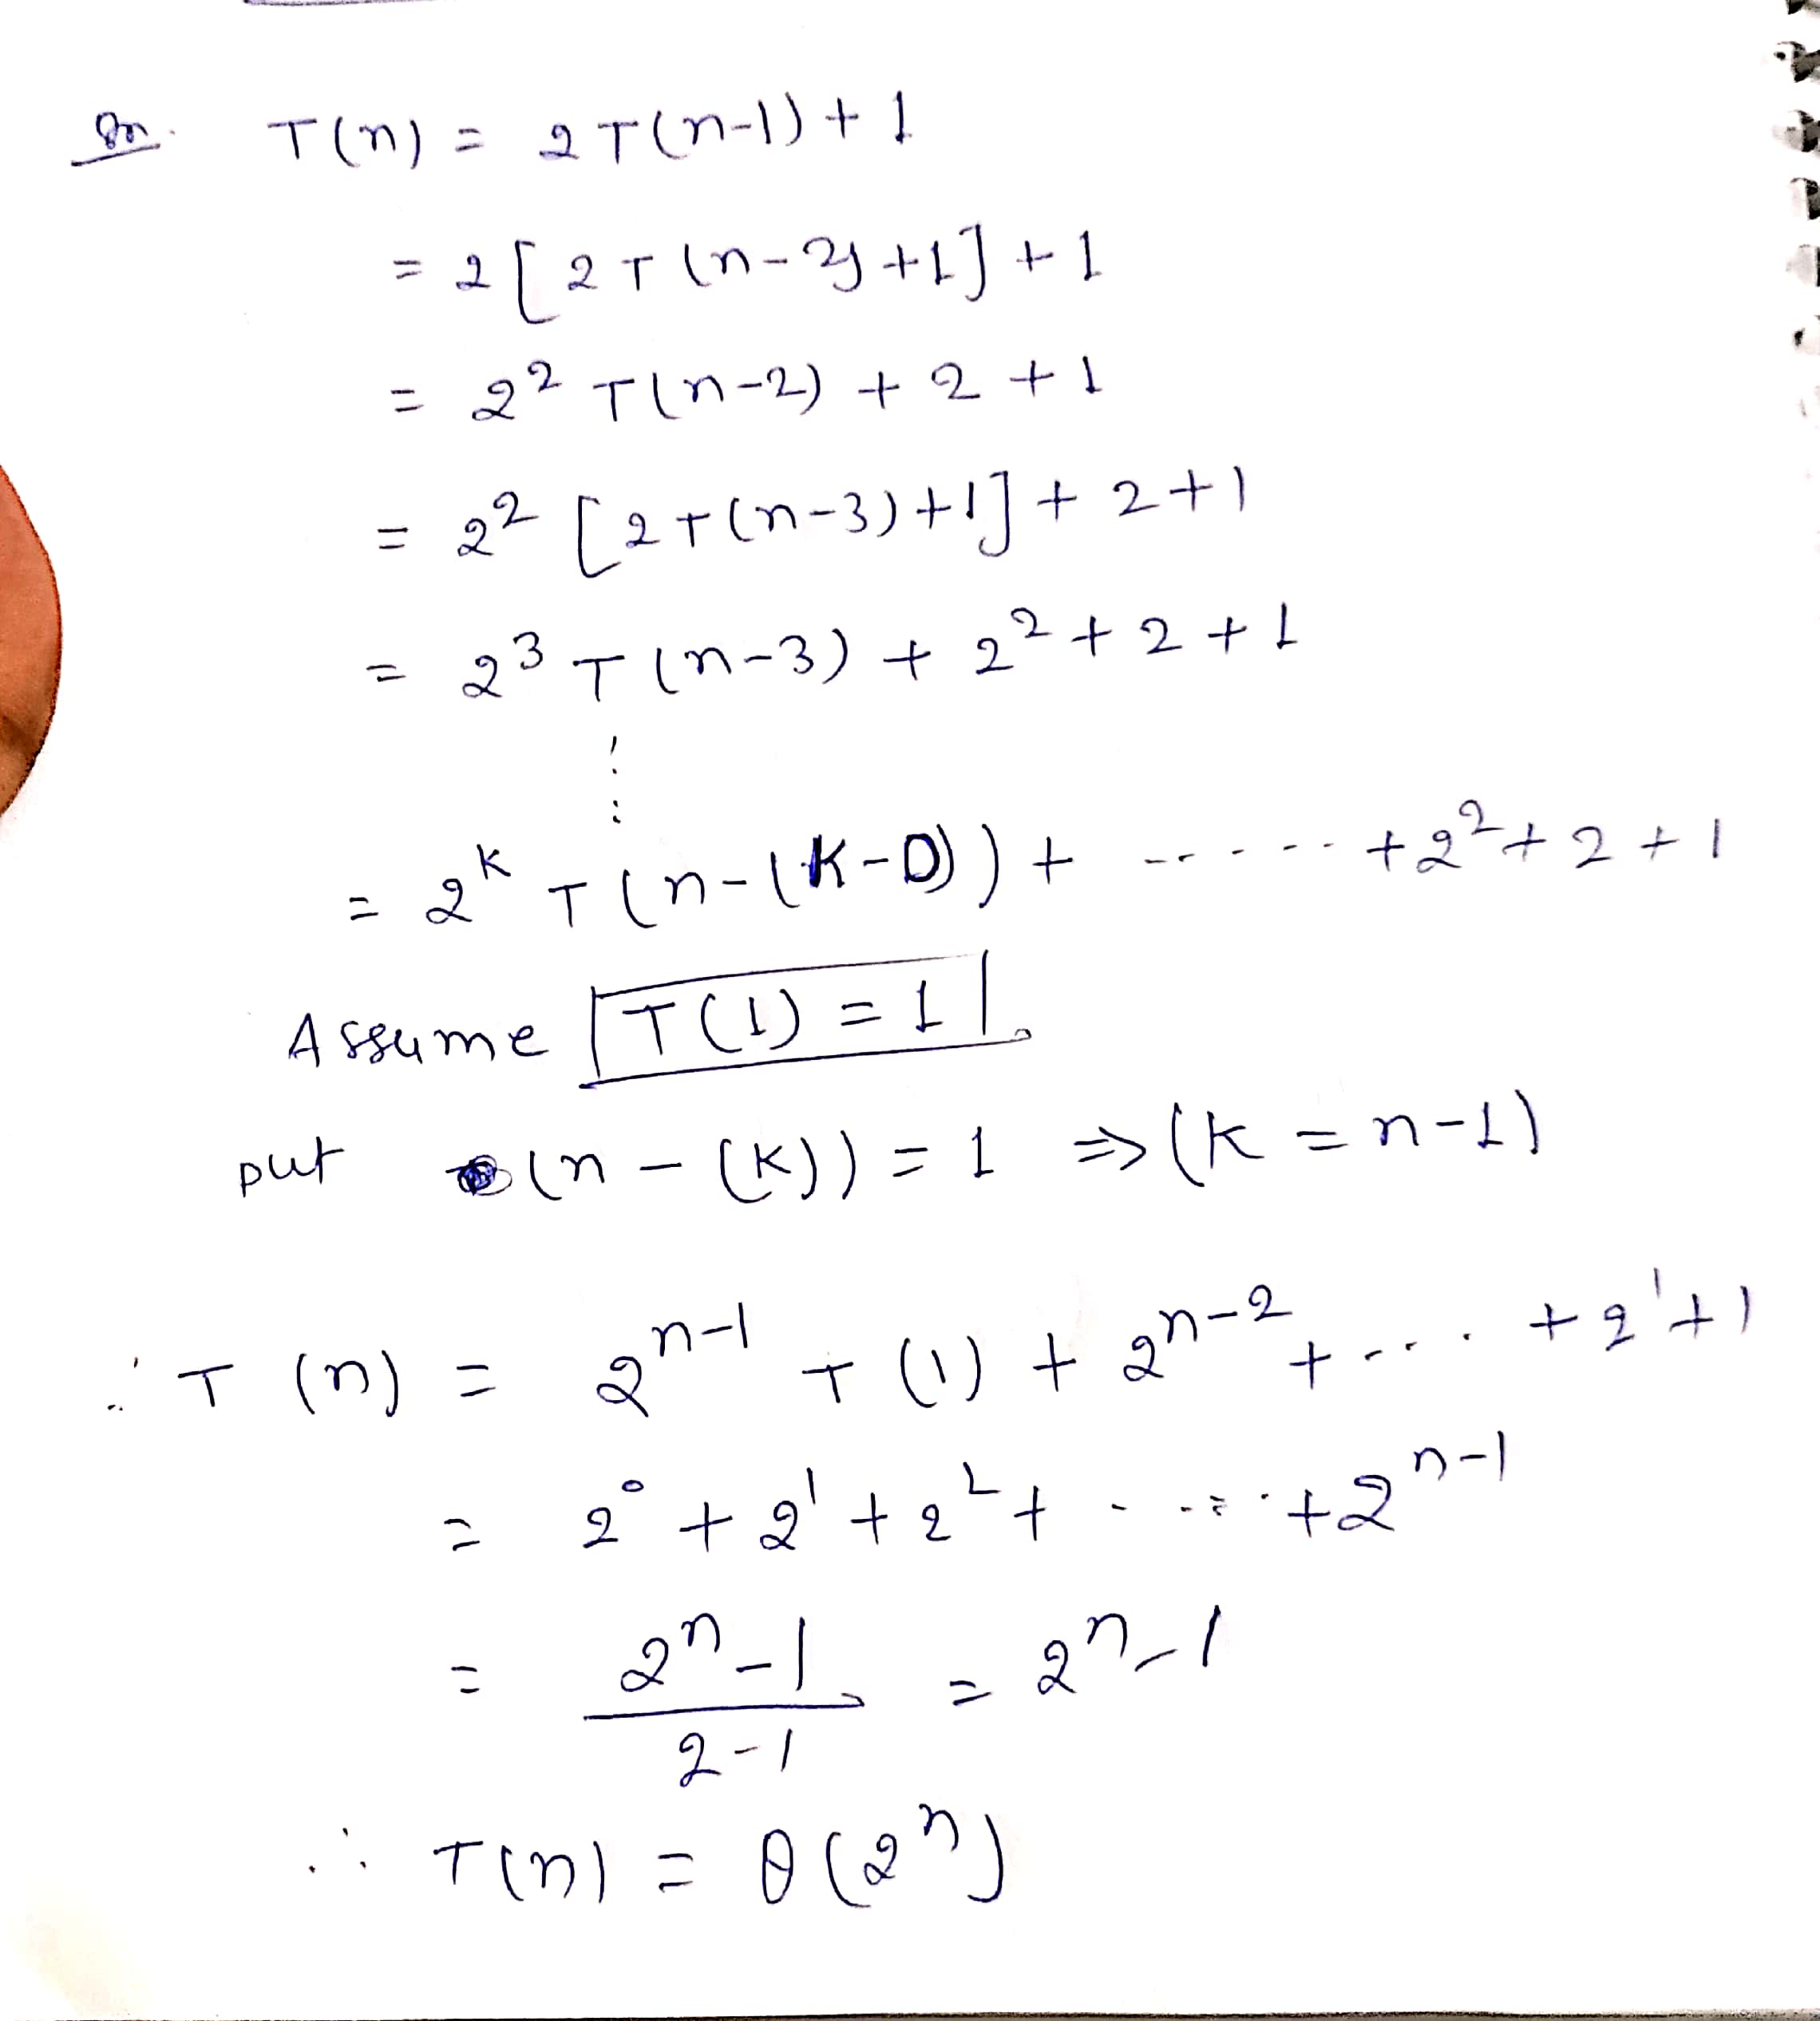 Qn. T(n) = 2T(n-1) + 1
= 2[2T(n-2)+1] + 1
= 2² T(n-2) + 2 + 1
= 2² [2T(n-3)+1] + 2+1
= 2³ T(n-3) + 2² + 2 + 1
= 2ᵏ T(n-(K-1)) + ------ + 2² + 2 + 1
Assume T(1) = 1
put (n - (K)) = 1 ⇒ (K = n-1)
∴ T(n) = 2ⁿ⁻¹ T(1) + 2ⁿ⁻² + .... + 2¹ + 1
= 2⁰ + 2¹ + 2² + ..... + 2ⁿ⁻¹
= (2ⁿ - 1)/(2-1) = 2ⁿ - 1
∴ T(n) = θ(2ⁿ)